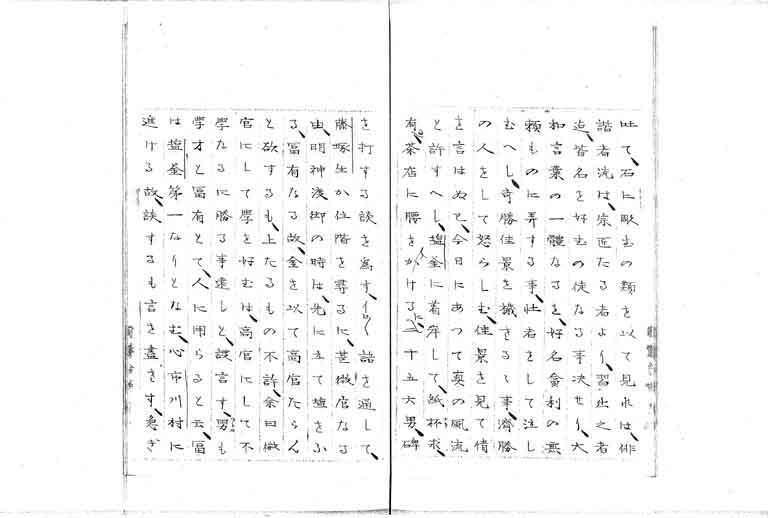 吐て、石に歌書の類を以て見れは、俳
諧者流は、宗匠たる者より、習止之者
迄、皆名を好むの徒なる事決せり、大
和言葉の一體なるを、好名貪利の無
頼ものに弄する事、壮者をして注し
むへし、奇勝佳景を撰さる事、濟勝
の人をして怒らしむ、佳景を見て情
を言はぬと、今日にあつて真の風流
と許すへし、塩釜に着岸して、紙杯求
有、茶店に腰をかける二十五六男、碑
を打する談を為す、語を通して、
藤塚生か位階を尋るに、甚微官なる
由、明神渡御の時は、先に立て塩をふ
る、冨有なる故、金を以て高官たらん
と欲するも、上たるもの不許、余曰微
官にして學を好むは、高官にして不
學なるに勝る事遠しと、談言す、男も
學才と冨有とて、人に用らると云、冨
は塩釜第一なりとなむ、心市川村に
進ける故、談するも言を盡さす、急き